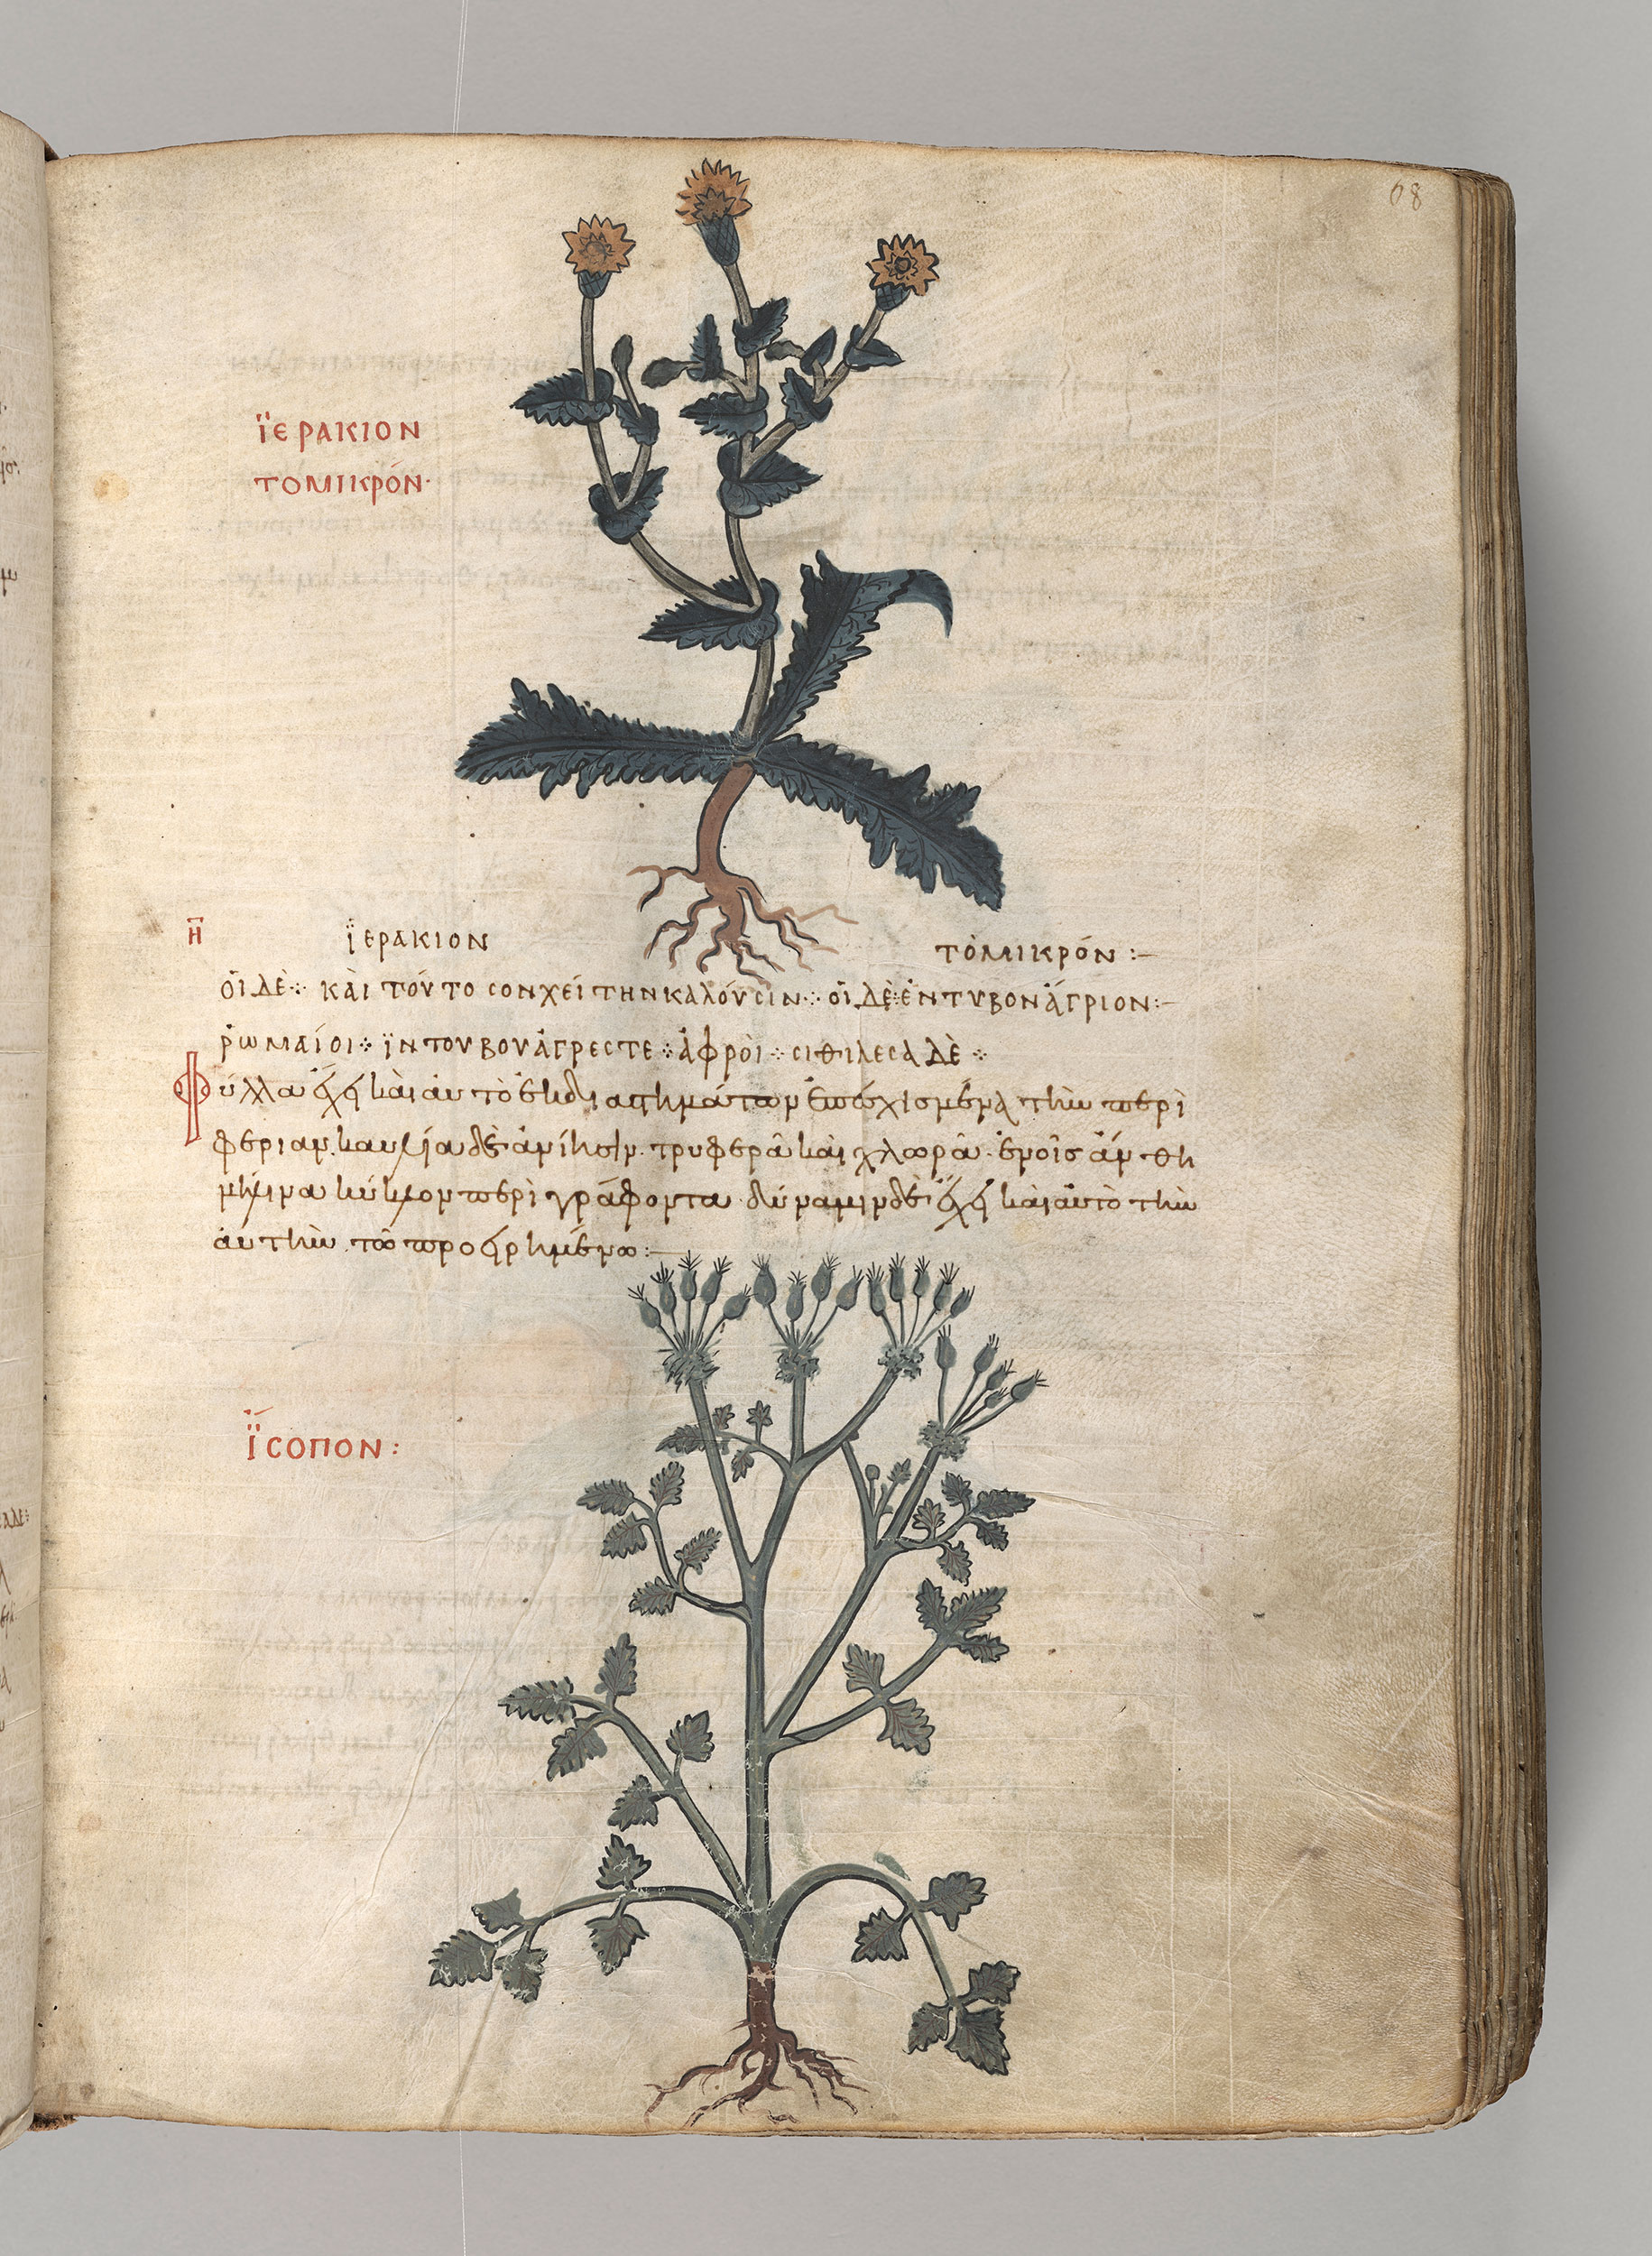 68
ϊερακιον
τομικρόν·
η
ϊερακιον τὸμικρόν :–
ὁϊδὲ ⁘ κὰι τόυτο σονχεί τηνκαλόυσιν ⁘ ὁϊ δὲ ἐντυβον ἄγριον :–
ῥωμαίοι ⁘ ϊντουβουἀγρεστε ⁘ ἀφρὸι ⁘ σιθιλεσαδὲ ⁘
φύλλα ἔχει κὰι αυτὸ ἐκδιαστημάτων ἐπεσχισμένα τὴν περι
φέριαν. καυλία δὲ ἀνίησιν τρυφερὰ κὰι χλωρὰ. ἐνοῖς ἄνθη
μήλινα κύκλον περιγράφοντα δύναμιν δὲ ἔχει κὰι ἀυτὸ τὴν
ἀυτὴν τῶ προειρημένω :–
ϊσοπον :